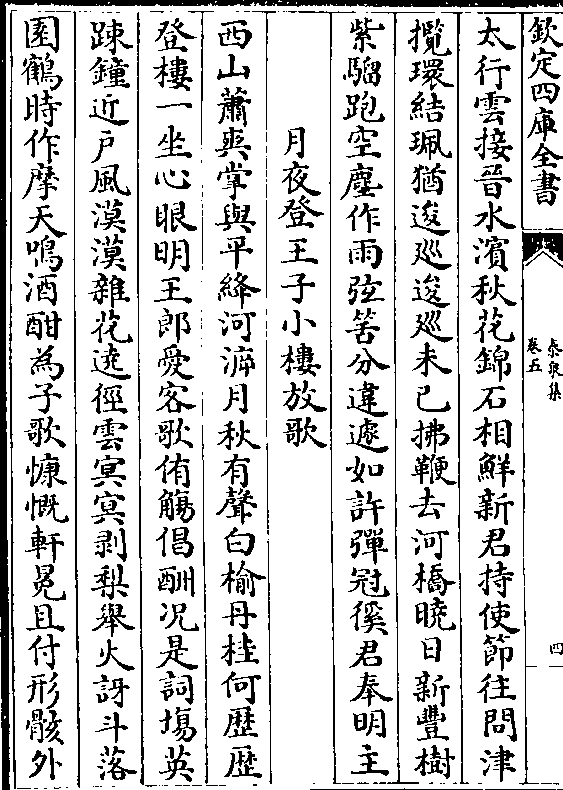 欽定四庫全書
泰泉集
卷五
四
太行雲接晉水濱秋花錦石相鮮新君持使節往問津
攬環結珮猶逡廵逡廵未已拂鞭去河橋曉日新豐樹
紫騮跑空塵作雨弦筈分違遽如許彈冠徯君奉明主
月夜登王子小樓放歌
西山蕭爽掌與平絳河㴑月秋有聲白榆丹桂何歴歴
登樓一坐心眼明王郎愛客歌侑觴倡酬况是詞塲英
踈鐘近户風漠漠雜花遶徑雲冥冥剥棃舉火訝斗落
園鶴時作摩天鳴酒酣為子歌慷慨軒冕且付形骸外